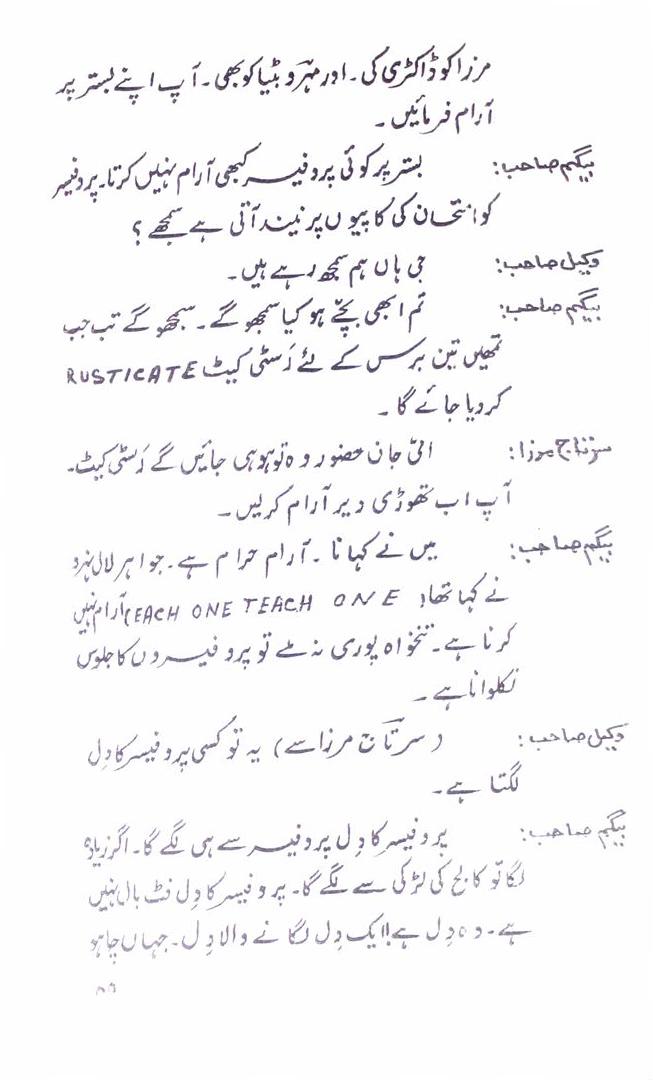 مرزا کو ڈاکٹری کی۔ اور مہرو بٹیا کو بھی۔ آپ اپنے بستر پر
آرام فرمائیں۔
بیگم صاحب: بستر پر کوئی پروفیسر کبھی آرام نہیں کرتا۔ پروفیسر
کو امتحان کی کاپیوں پر نیند آتی ہے سمجھے؟
وکیل صاحب: جی ہاں ہم سمجھ رہے ہیں۔
بیگم صاحب: تم ابھی بچّے ہو کیا سمجھو گے۔ سمجھو گے تب جب
تمھیں تین برس کے لئے رَسٹی کیٹ RUSTICATE
کردیا جائے گا۔
سرتاج مرزا: امّی جان حضور وہ تو ہو ہی جائیں گے رَسٹی کیٹ۔
آپ اب تھوڑی دیر آرام کرلیں۔
بیگم صاحب: میں نے کہا نا۔ آرام حرام ہے۔ جواہر لال نہرو
نے کہا تھا! EACH ONE TEACH ONE) آرام نہیں
کرنا ہے۔ تنخواہ پوری نہ ملے تو پروفیسروں کا جلوس
نکلوانا ہے۔
وکیل صاحب: (سرتاج مرزا سے) یہ تو کسی پروفیسر کا دِل
لگتا ہے۔
بیگم صاحب: پروفیسر کا دِل پروفیسر سے ہی لگے گا۔ اگر زیادہ
لگا تو کالج کی لڑکی سے لگے گا۔ پروفیسر کا دِل فٹ بال نہیں
ہے۔ وہ دِل ہے!! ایک دِل لگانے والا دِل۔ جہاں چاہو